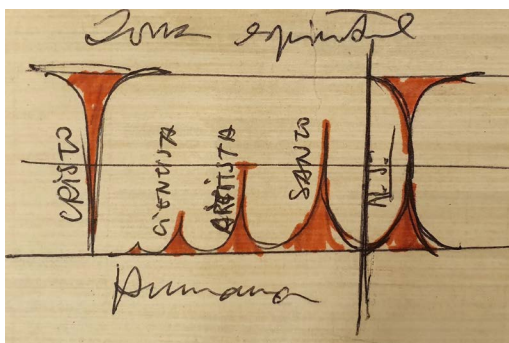 Zona espiritual
CRISTO
CIENTISTA
ARTISTA
SANTO
N.J.
Humana